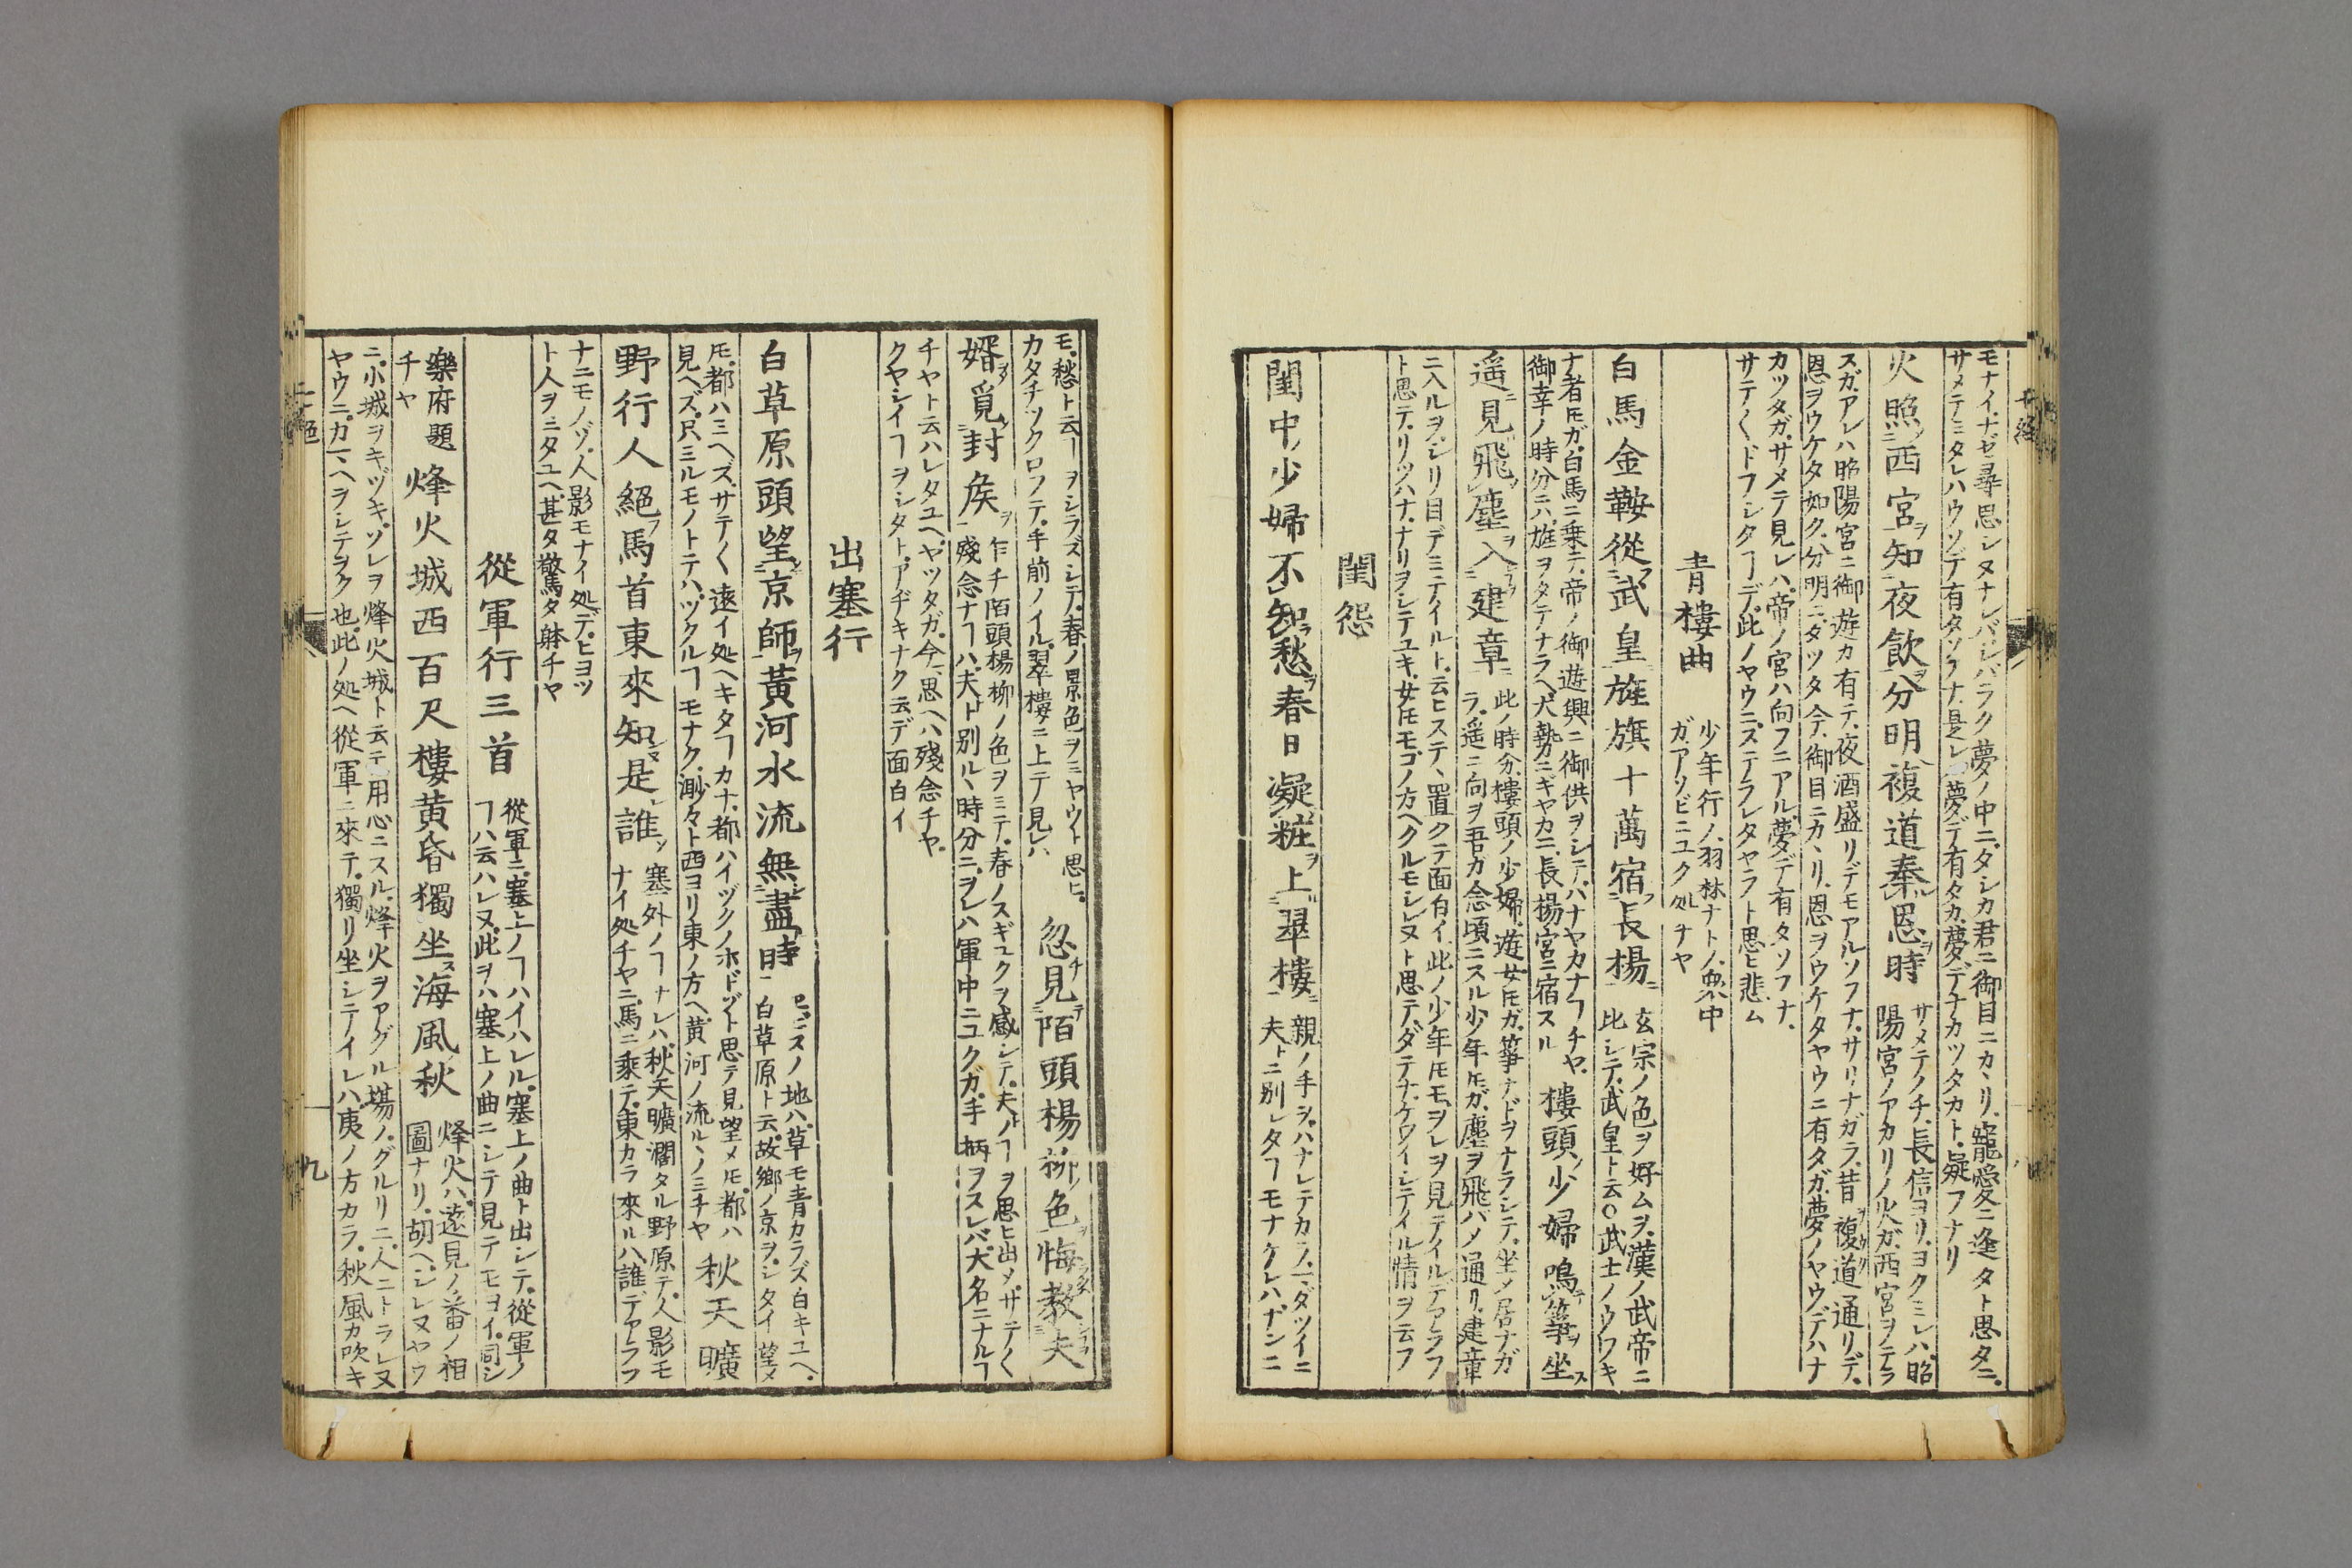 モナイ、ナゼ尋思シヌナレバ、シバラク夢ノ中ニ、タシカ君ニ御目ニカヽリ、寵愛ニ逢タト思タニ、
サメテミタレハウソデ有タソフナ、是レ夢デ有タカ、夢デナカツタカト、疑フナリ
火照西宮知夜飲分明複道奉恩時
サメテノチ、長信ヨリ、ヨクミレハ、昭
陽宮ノアカリノ火ガ、西宮ヲテラ
スガアレハ昭陽宮ニ御遊カ有テ、夜酒盛リデモアルソフナ、サリナガラ、昔複道通リデ、
恩ヲウケタ如ク、分明ニ、タツタ今、御目ニカヽリ、恩ヲウケタヤウニ有タガ、夢ノヤウデハナ
カツタガ、サメテ見レハ、帝ノ宮ハ向フニアル、夢デ有タソフナ、
サテ〱ドフシタヿデ、此ノヤウニ、ステラレタヤラト思ヒ悲ム
青樓曲
少年行ノ、羽林ナトノ、衆中
ガ、アソビニユク処ヂヤ
白馬金鞍從武皇旌旗十萬宿長楊
玄宗ノ色ヲ好ムヲ、漢ノ武帝ニ
比シテ、武皇ト云〇武士ノウワキ
ナ者𪜈ガ、白馬ニ乗テ、帝ノ御遊興ニ御供ヲシテ、ハナヤカナヿヂヤ、
御幸ノ時分ニハ、旌ヲタテナラヘ大勢ニギヤカニ、長楊宮ニ宿スル
樓頭少婦鳴箏坐
遥見飛塵入建章
此ノ時分、樓頭ノ少婦、遊女𪜈ガ、箏ナドヲナラシテ、坐メ居ナガ
ラ、遥ニ向ヲ吾カ念頃ニスル少年𪜈ガ、塵ヲ飛バメ通リ、建章
ニ入ルヲ、シリ目デミテイルト、云ヒステヽ置クテ面白イ、此ノ少年𪜈モ、ヲレヲ見テイルデアラフ
ト思テ、リツハナ、ナリヲシテユキ、女𪜈モ、コノ方ヘクルモシレヌト思テ、ダテナ、ケワイシテイル情ヲ云フ
閨怨
閨中少婦不知愁春日凝粧上翠樓
親ノ手ヲ、ハナレテカラ、一ダツイニ
夫トニ別レタヿモナケレハ、ナンニ
モ、愁ト云ヿヲシラズシテ、春ノ景色ヲミヤウト思ヒ、
カタチツクロフテ、手前ノイル、翠樓ニ上テ見レハ
忽見陌頭楊柳色悔教夫
婿覓封矦
乍チ陌頭楊柳ノ色ヲミテ、春ノスギユクヲ感シテ、夫トノヿヲ思ヒ出メ、サテ〱
殘念ナヿハ、夫ト別ルヽ時分ニ、ヲレハ軍中ニユクガ、手柄ヲスレバ、大名ニナルヿ
ヂヤト云ハレタユヘ、ヤツタガ、今思ヘハ殘念ヂヤ、
クヤシイヿヲシタト、アヂキナク云デ面白イ
出塞行
白草原頭望京師黃河水流無盡時
ヱビスノ地ハ、草モ青カラズ、白キユヘ、
白草原ト云、故郷ノ京ヲ、シタイ望メ
𪜈、都ハミヘズ、サテ〱遠イ処ヘキタヿカナ、都ハイヅクノホドゾト思テ見望メ𪜈、都ハ
見ヘズ、只ミルモノトテハ、ツクルヿモナク、渺々ト西ヨリ東ノ方ヘ、黄河ノ流ルヽノミヂヤ
秋天曠
野行人絕馬首東來知是誰
塞外ノヿナレハ、秋天曠濶タル野原デ、人影モ
ナイ処ヂヤニ、馬ニ乘テ、東カラ來ルハ、誰デアラフ
ナニモノゾ、人影モナイ処デ、ヒヨツ
ト人ヲミタユヘ、甚タ驚タ躰ヂヤ
從軍行三首
從軍ニ、塞上ノヿハイハレル、塞上ノ曲ト出シテ、從軍ノ
ヿハ云ハレヌ、此ヲハ塞上ノ曲ニシテ見テモヨイ、同シ
樂府題
ヂヤ
烽火城西百尺樓黃昏獨坐海風秋
烽火ハ、遠見ノ番ノ相
圖ナリ、胡ヘ、シレヌヤウ
ニ、小城ヲキヅキ、ソレヲ烽火城ト云テ、用心ニスル、烽火ヲアグル塲ノ、グルリニ、人ニトラレヌ
ヤウニ、カマヘヲシテヲク也、此ノ処ヘ從軍ニ來テ、獨リ坐シテイレハ、夷ノ方カラ、秋風カ吹キ
九